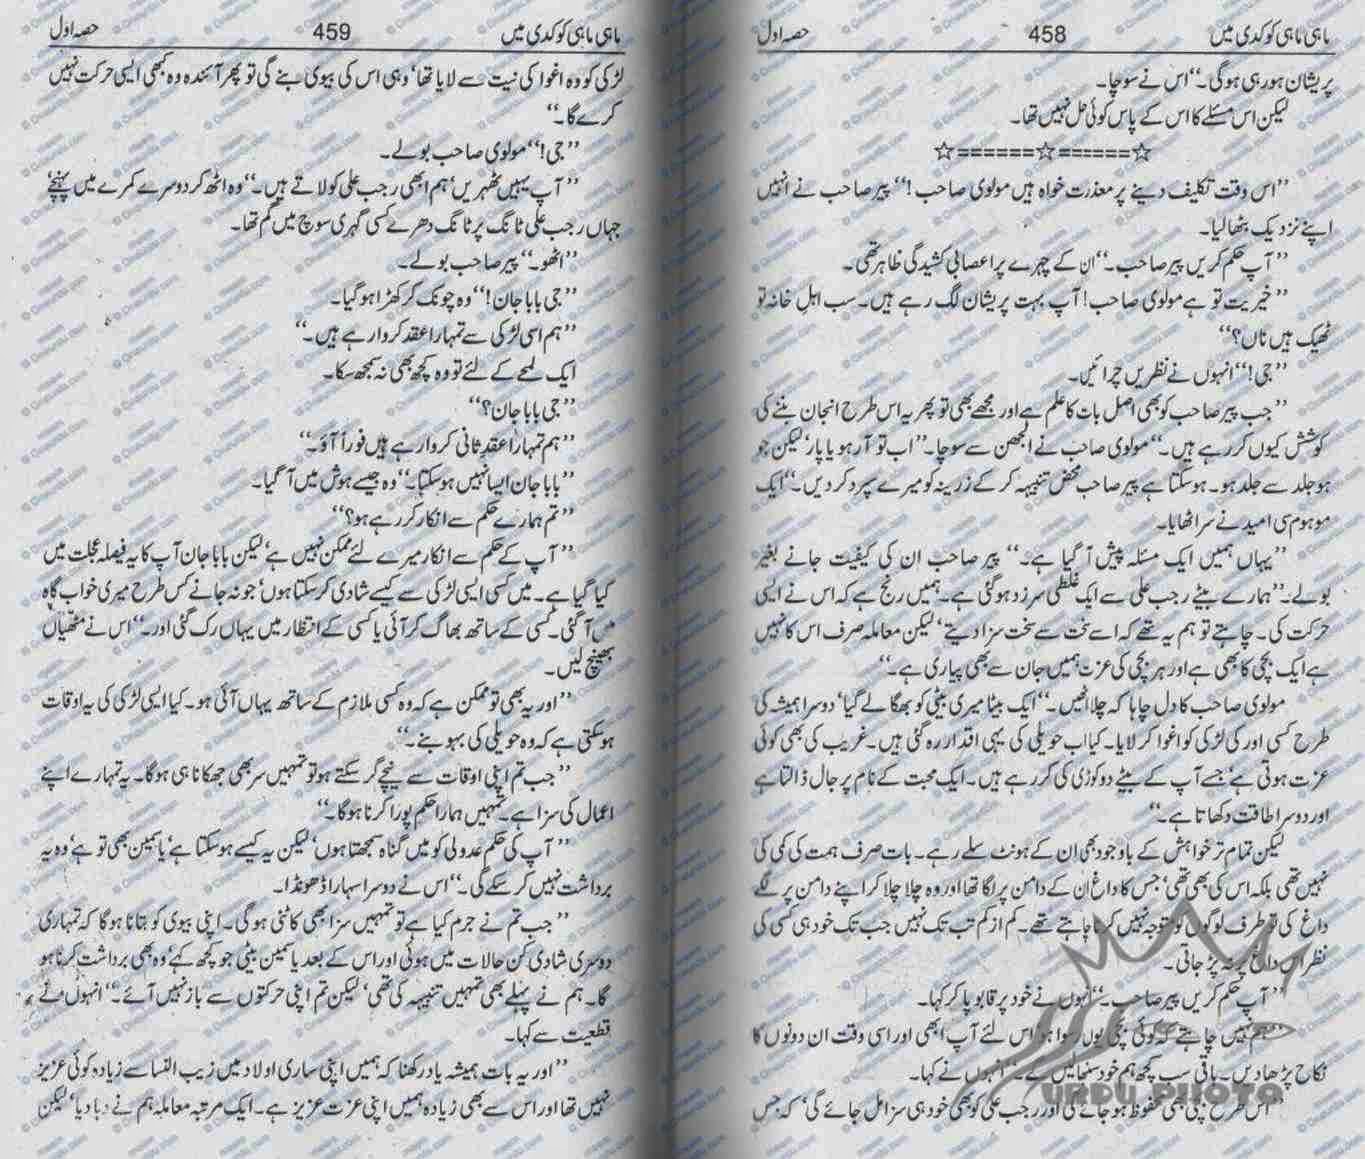 ماہی ماہی کوکدی میں 458 حصہ اول
پریشان ہو رہی ہو گی۔‘‘ اس نے سوچا۔
لیکن اس مسئلے کا اس کے پاس کوئی حل نہیں تھا۔
☆======☆======☆
’’اس وقت تکلیف دینے پر معذرت خواہ ہیں مولوی صاحب!‘‘ پیر صاحب نے انہیں
اپنے نزدیک بٹھا لیا۔
’’آپ حکم کریں پیر صاحب۔‘‘ ان کے چہرے پر اعصابی کشیدگی ظاہر تھی۔
’’خیریت تو ہے مولوی صاحب! آپ بہت پریشان لگ رہے ہیں۔ سب اہلِ خانہ تو
ٹھیک ہیں ناں؟‘‘
’’جی!‘‘ انہوں نے نظریں چرائیں۔
’’جب پیر صاحب کو بھی اصل بات کا علم ہے اور مجھے بھی تو پھر یہ اس طرح انجان بننے کی
کوشش کیوں کر رہے ہیں۔‘‘ مولوی صاحب نے الجھن سے سوچا۔ ’’اب تو آر ہو یا پار‘ لیکن جو
ہو جلد سے جلد ہو۔ ہو سکتا ہے پیر صاحب محض تنبیہہ کر کے زرینہ کو میرے سپرد کر دیں۔‘‘ ایک
موہوم سی امید نے سر اٹھایا۔
’’یہاں ہمیں ایک مسئلہ پیش آ گیا ہے۔‘‘ پیر صاحب ان کی کیفیت جانے بغیر
بولے۔ ’’ہمارے بیٹے رجب علی سے ایک غلطی سرزد ہو گئی ہے۔ ہمیں رنج ہے کہ اس نے ایسی
حرکت کی۔ چاہتے تو ہم یہ تھے کہ اسے سخت سے سخت سزا دیتے‘ لیکن معاملہ صرف اس کا نہیں
ہے ایک بچی کا بھی ہے اور ہر بچی کی عزت ہمیں جان سے بھی پیاری ہے۔‘‘
مولوی صاحب کا دل چاہا کہ چلا اٹھیں۔ ’’ایک بیٹا میری بیٹی کو بھگا لے گیا‘ دوسرا ہمیشہ کی
طرح کسی اور کی لڑکی کو اغوا کر لایا۔ کیا اب حویلی کی یہی اقدار رہ گئی ہیں۔ غریب کی بھی کوئی
عزت ہوتی ہے‘ جسے آپ کے بیٹے دو کوڑی کی کر رہے ہیں۔ ایک محبت کے نام پر جال ڈالتا ہے
اور دوسرا طاقت دکھاتا ہے۔‘‘
لیکن تمام تر خواہش کے باوجود بھی ان کے ہونٹ سلے رہے۔ بات صرف ہمت کی کمی کی
نہیں تھی بلکہ اس کی بھی تھی‘ جس کا داغ ان کے دامن پر لگا تھا اور وہ چلا چلا کر اپنے دامن پر لگے
داغ کی طرف لوگوں کو متوجہ نہیں کرنا چاہتے تھے۔ کم از کم تب تک نہیں جب تک خود ہی کسی کی
نظر اس داغ پر نہ پڑ جاتی۔
’’آپ حکم کریں پیر صاحب۔‘‘ انہوں نے خود پر قابو پا کر کہا۔
’’ہم نہیں چاہتے کہ کوئی بچی یوں رسوا ہو اس لئے آپ ابھی اور اسی وقت ان دونوں کا
نکاح پڑھا دیں۔ باقی سب کچھ ہم خود سنبھالیں گے۔‘‘ انہوں نے کہا۔
’’اس طرح بچی بھی محفوظ ہو جائے گی اور رجب علی کو بھی خود ہی سزا مل جائے گی‘ کہ جس
URDU PHOTO
ماہی ماہی کوکدی میں 459 حصہ اول
لڑکی کو وہ اغوا کی نیت سے لایا تھا‘ وہی اس کی بیوی بنے گی تو پھر آئندہ وہ کبھی ایسی حرکت نہیں
کرے گا۔‘‘
’’جی!‘‘ مولوی صاحب بولے۔
’’آپ یہیں ٹھہریں‘ ہم ابھی رجب علی کو لاتے ہیں۔‘‘ وہ اٹھ کر دوسرے کمرے میں پہنچے‘
جہاں رجب علی ٹانگ پر ٹانگ دھرے کسی گہری سوچ میں گم تھا۔
’’اٹھو۔‘‘ پیر صاحب بولے۔
’’جی بابا جان!‘‘ وہ چونک کر کھڑا ہو گیا۔
’’ہم اسی لڑکی سے تمہارا عقد کروا رہے ہیں۔‘‘
ایک لمحے کے لئے تو وہ کچھ بھی نہ سمجھ سکا۔
’’جی بابا جان؟‘‘
’’ہم تمہارا عقدِ ثانی کروا رہے ہیں فوراً آؤ۔‘‘
’’بابا جان ایسا نہیں ہو سکتا۔‘‘ وہ جیسے ہوش میں آ گیا۔
’’تم ہمارے حکم سے انکار کر رہے ہو؟‘‘
’’آپ کے حکم سے انکار میرے لئے ممکن نہیں ہے‘ لیکن بابا جان آپ کا یہ فیصلہ عجلت میں
کیا گیا ہے۔ میں کسی ایسی لڑکی سے کیسے شادی کر سکتا ہوں‘ جو نہ جانے کس طرح میری خواب گاہ
میں آ گئی۔ کسی کے ساتھ بھاگ کر آئی یا کسی کے انتظار میں یہاں رک گئی اور۔‘‘ اس نے مٹھیاں
بھینچ لیں۔
’’اور یہ بھی تو ممکن ہے کہ وہ کسی ملازم کے ساتھ یہاں آئی ہو۔ کیا ایسی لڑکی کی یہ اوقات
ہو سکتی ہے کہ وہ حویلی کی بہو بنے۔‘‘
’’جب تم اپنی اوقات سے نیچے گر سکتے ہو تو تمہیں سر بھی جھکانا ہی ہو گا۔ یہ تمہارے اپنے
اعمال کی سزا ہے۔ تمہیں ہمارا حکم پورا کرنا ہو گا۔‘‘
’’آپ کی حکم عدولی کو میں گناہ سمجھتا ہوں‘ لیکن یہ کیسے ہو سکتا ہے‘ یاسمین بھی تو ہے‘ وہ یہ
برداشت نہیں کر سکے گی۔‘‘ اس نے دوسرا سہارا ڈھونڈا۔
’’جب تم نے جرم کیا ہے تو تمہیں سزا بھی کاٹنی ہو گی۔ اپنی بیوی کو بتانا ہو گا کہ تمہاری
دوسری شادی کن حالات میں ہوئی اور اس کے بعد یاسمین بیٹی جو کچھ کہے‘ وہ بھی برداشت کرنا ہو
گا۔ ہم نے پہلے بھی تمہیں تنبیہہ کی تھی‘ لیکن تم اپنی حرکتوں سے باز نہیں آئے۔‘‘ انہوں نے
قطعیت سے کہا۔
’’اور یہ بات ہمیشہ یاد رکھنا کہ ہمیں اپنی ساری اولاد میں زیب النسا سے زیادہ کوئی عزیز
نہیں تھا اور اس سے بھی زیادہ ہمیں اپنی عزت عزیز ہے۔ ایک مرتبہ معاملہ ہم نے دبا دیا‘ لیکن